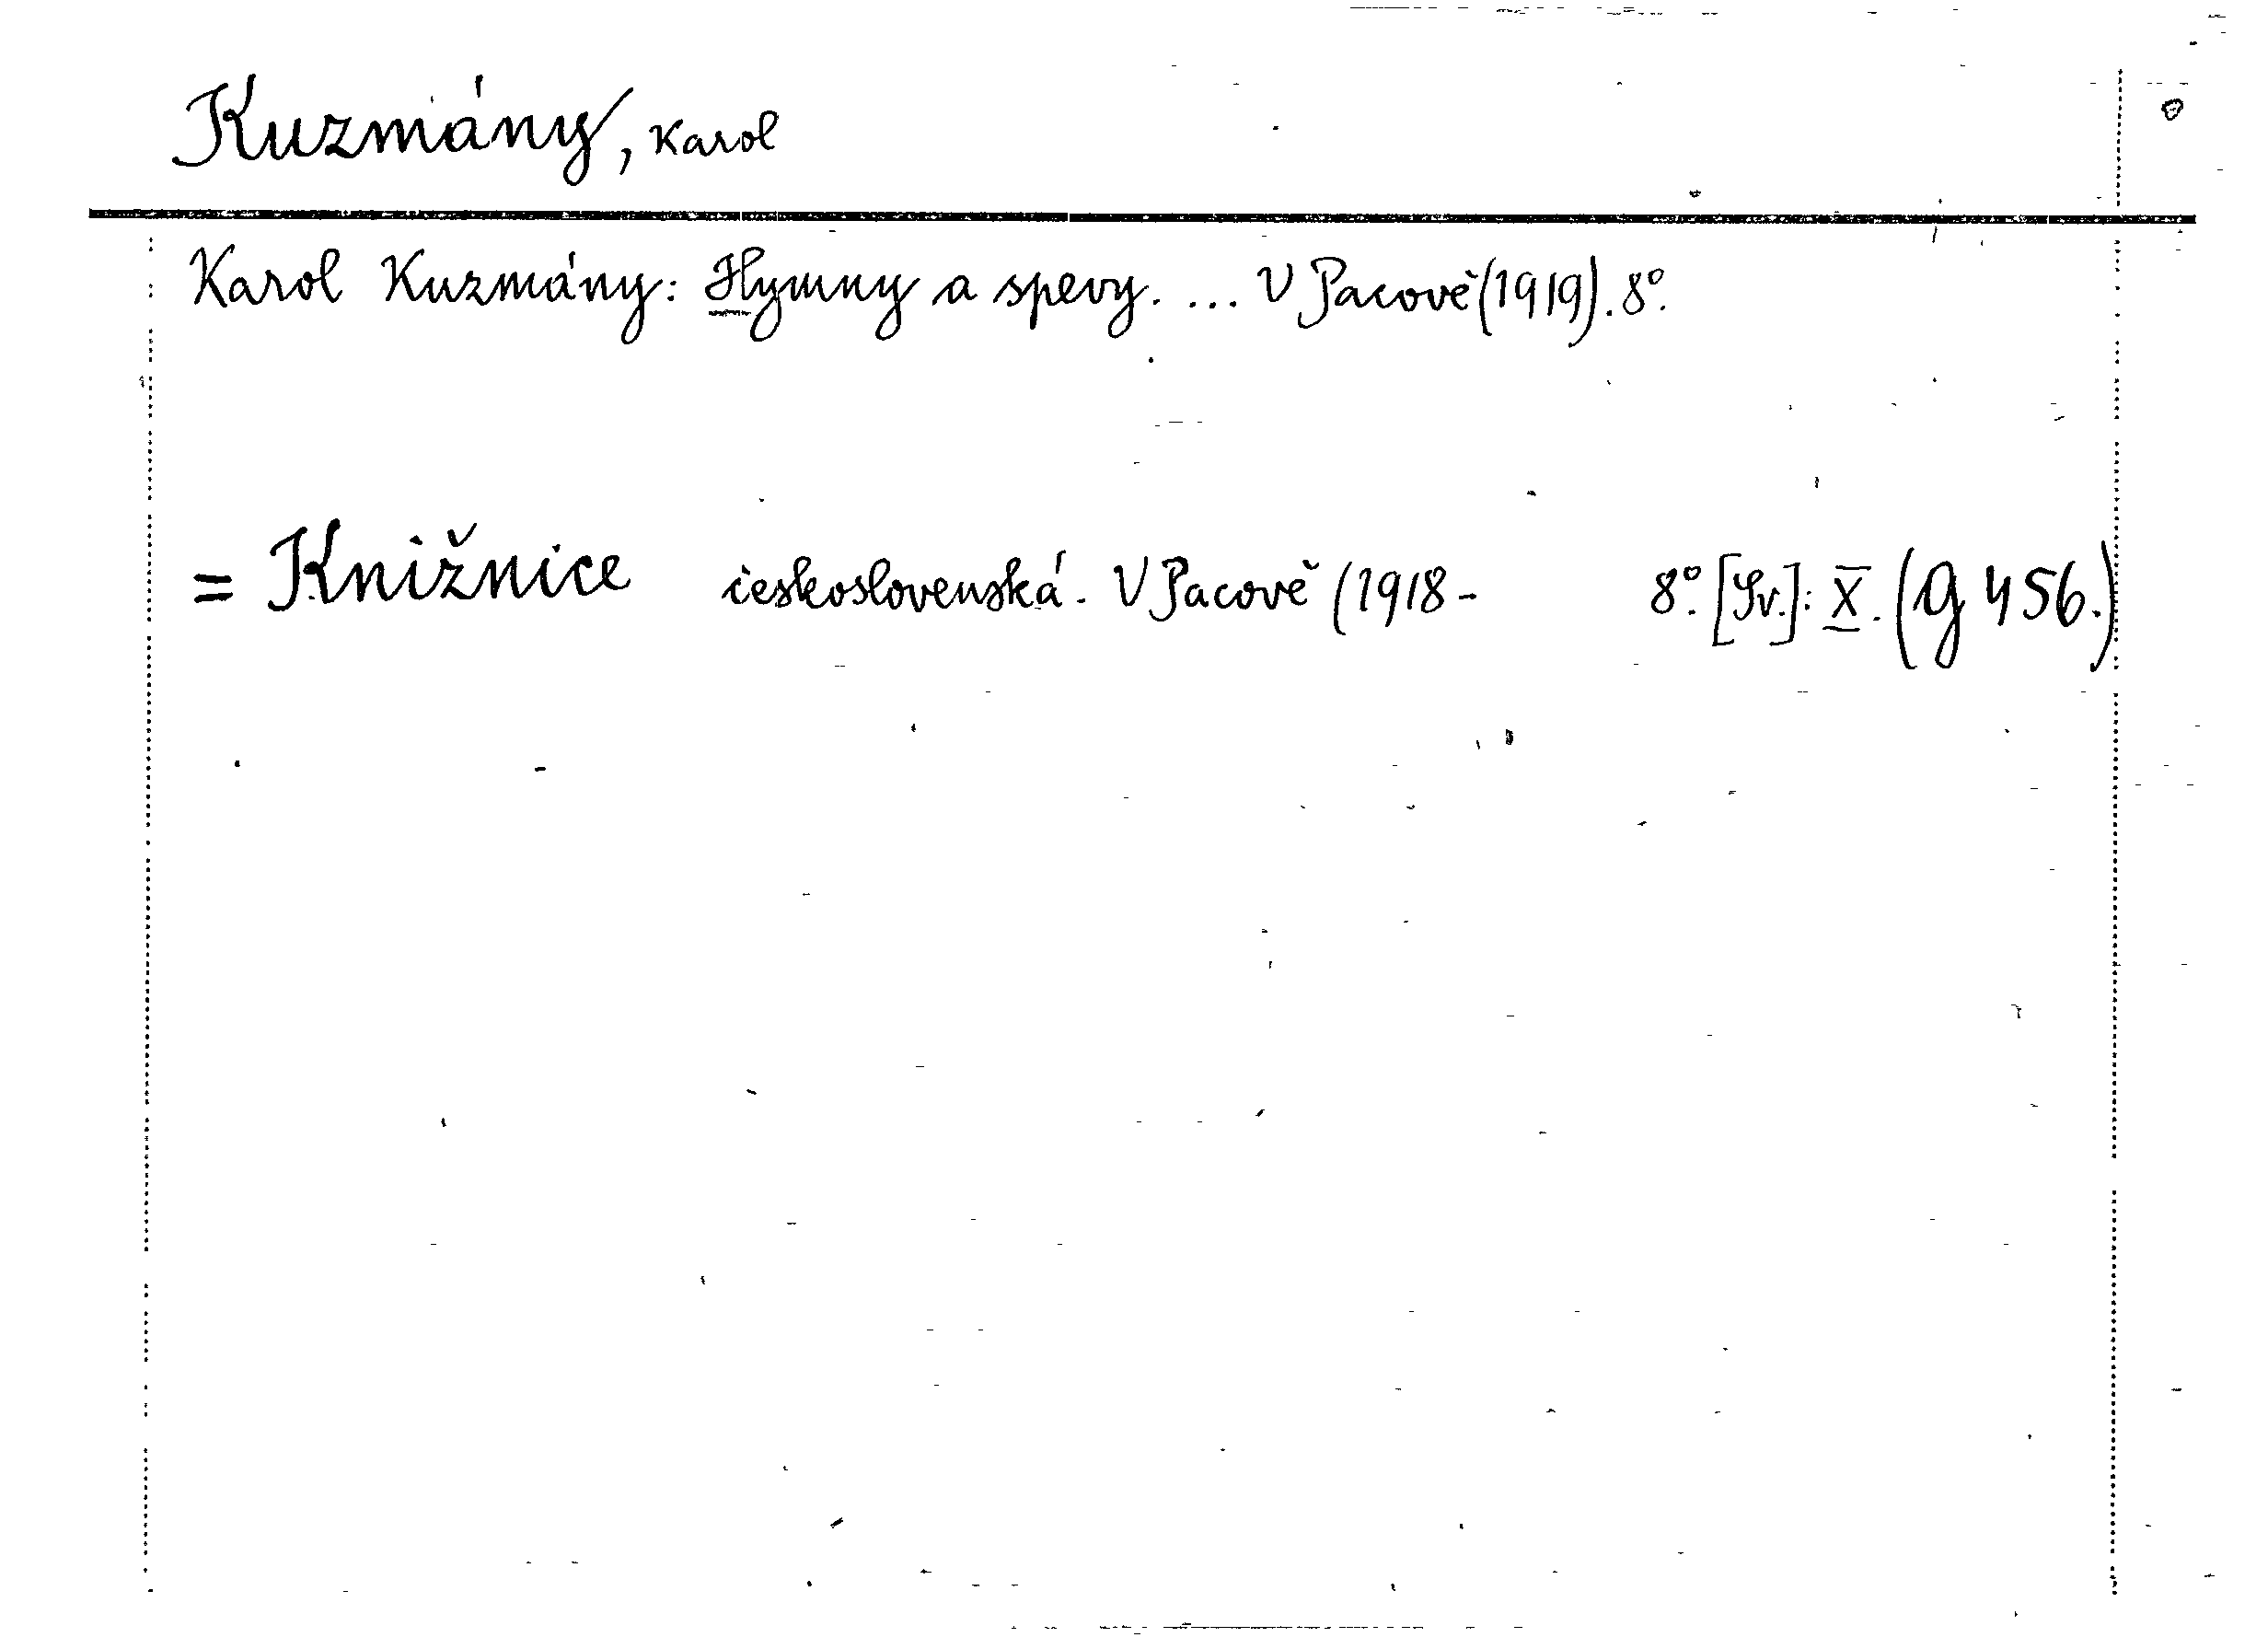 Kuzmány, Karol
Karol Kuzmány: Hymny a spevy. ... V Pacově (1919). 8º.
= Knižnice československá. V Pacově (1918- 8º. [Sv.]: X. (G 456.)